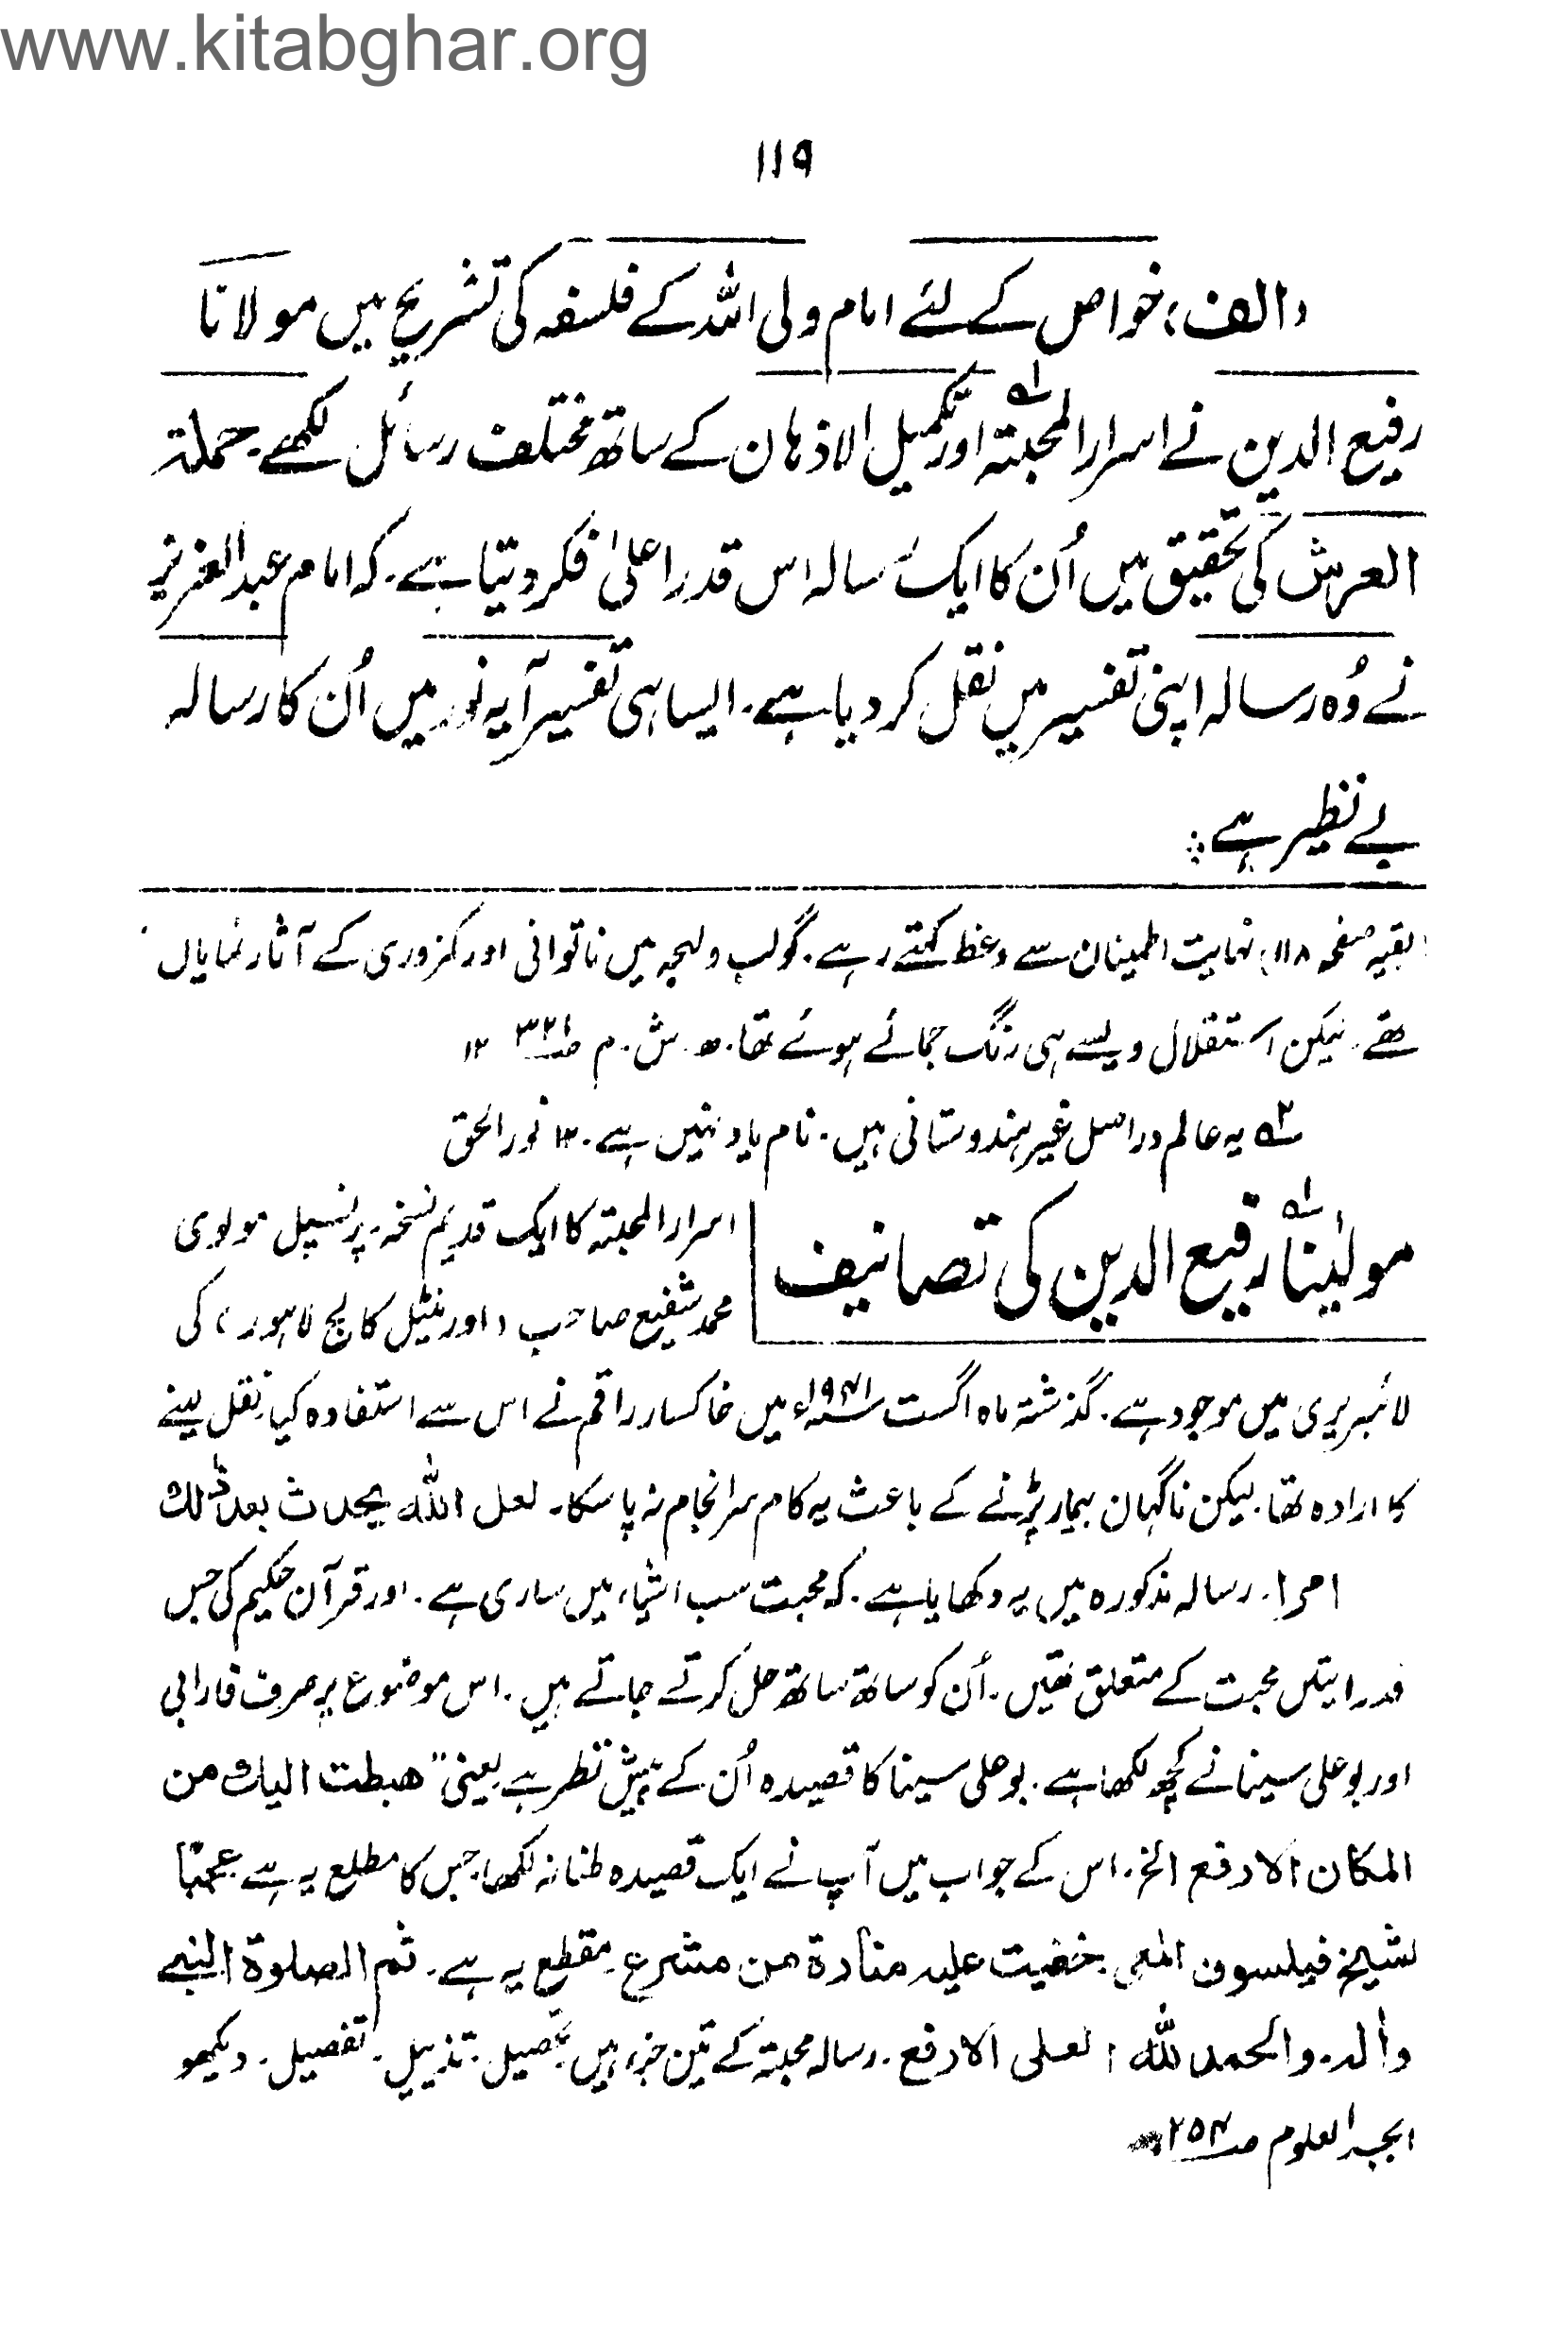 www.kitabghar.org
۱۱۹
(الف) خواص کے لئے امام ولی اللہ کے فلسفہ کی تشریح میں مولانا
رفیع الدین نے اسرار المحبتہ اور تکمیل الاذہان کے ساتھ مختلف رسائل لکھے۔ حملۃ
العرش کی تحقیق میں اُن کا ایک رسالہ اس قدر اعلیٰ فکر دیتا ہے۔ کہ امام عبد العزیز
نے وُہ رسالہ اپنی تفسیر میں نقل کر دیا ہے۔ ایسا ہی تفسیر آیہ نور میں اُن کا رسالہ
بے نظیر ہے ؞
(بقیہ صفحہ ۱۱۸) نہایت اطمینان سے وعظ کہتے رہے۔ گو لب و لہجہ میں ناتوانی اور کمزوری کے آثار نمایاں
تھے۔ لیکن استقلال ویسے ہی رنگ جمائے ہوئے تھا۔ ھ۔ ش۔ م ص۳۲۱ ۱۲
۲ یہ عالم دراصل غیر ہندوستانی ہیں۔ نام یاد نہیں ہے۔ ۱۲ نور الحق
مولیٰنا رفیع الدین کی تصانیف
اسرار المحبتہ کا ایک قدیم نسخہ پرنسپل مولوی
محمد شفیع صاحب (اورنٹیل کالج لاہور) کی
لائبریری میں موجود ہے۔ گذشتہ ماہ اگست ۱۹۴۱ء میں خاکسار راقم نے اس سے استفادہ کیا۔ نقل لینے
کا ارادہ تھا۔ لیکن ناگہان بیمار پڑنے کے باعث یہ کام سرانجام نہ پا سکا۔ لعل اللہ یحدث بعد ذٰلک
امرا۔ رسالہ مذکورہ میں یہ دکھایا ہے۔ کہ محبت سب اشیاء میں ساری ہے۔ اور قرآن حکیم کی جس
قدر ایتیں محبت کے متعلق تھیں۔ اُن کو ساتھ ساتھ حل کرتے جاتے ہیں۔ اس موضوع پر صرف فارابی
اور بو علی سینا نے کچھ لکھا ہے۔ بو علی سینا کا قصیدہ اُن کے پیش نظر ہے یعنی "ھبطت الیک من
المکان الارفع الخ۔ اس کے جواب میں آپ نے ایک قصیدہ طنانہ لکھا، جس کا مطلع یہ ہے عجبًا
لشیخ فیلسوف المعی۔ خفیت علیہ منارۃ من مشرع۔ مقطع یہ ہے۔ ثم الصلوۃ النبی
والہ۔ والحمد للہ العلی الارفع۔ رسالہ محبتہ کے تین جزء ہیں تحصیل۔ تذییل۔ تفصیل۔ دیکھو
ابجد العلوم ص۲۵۴